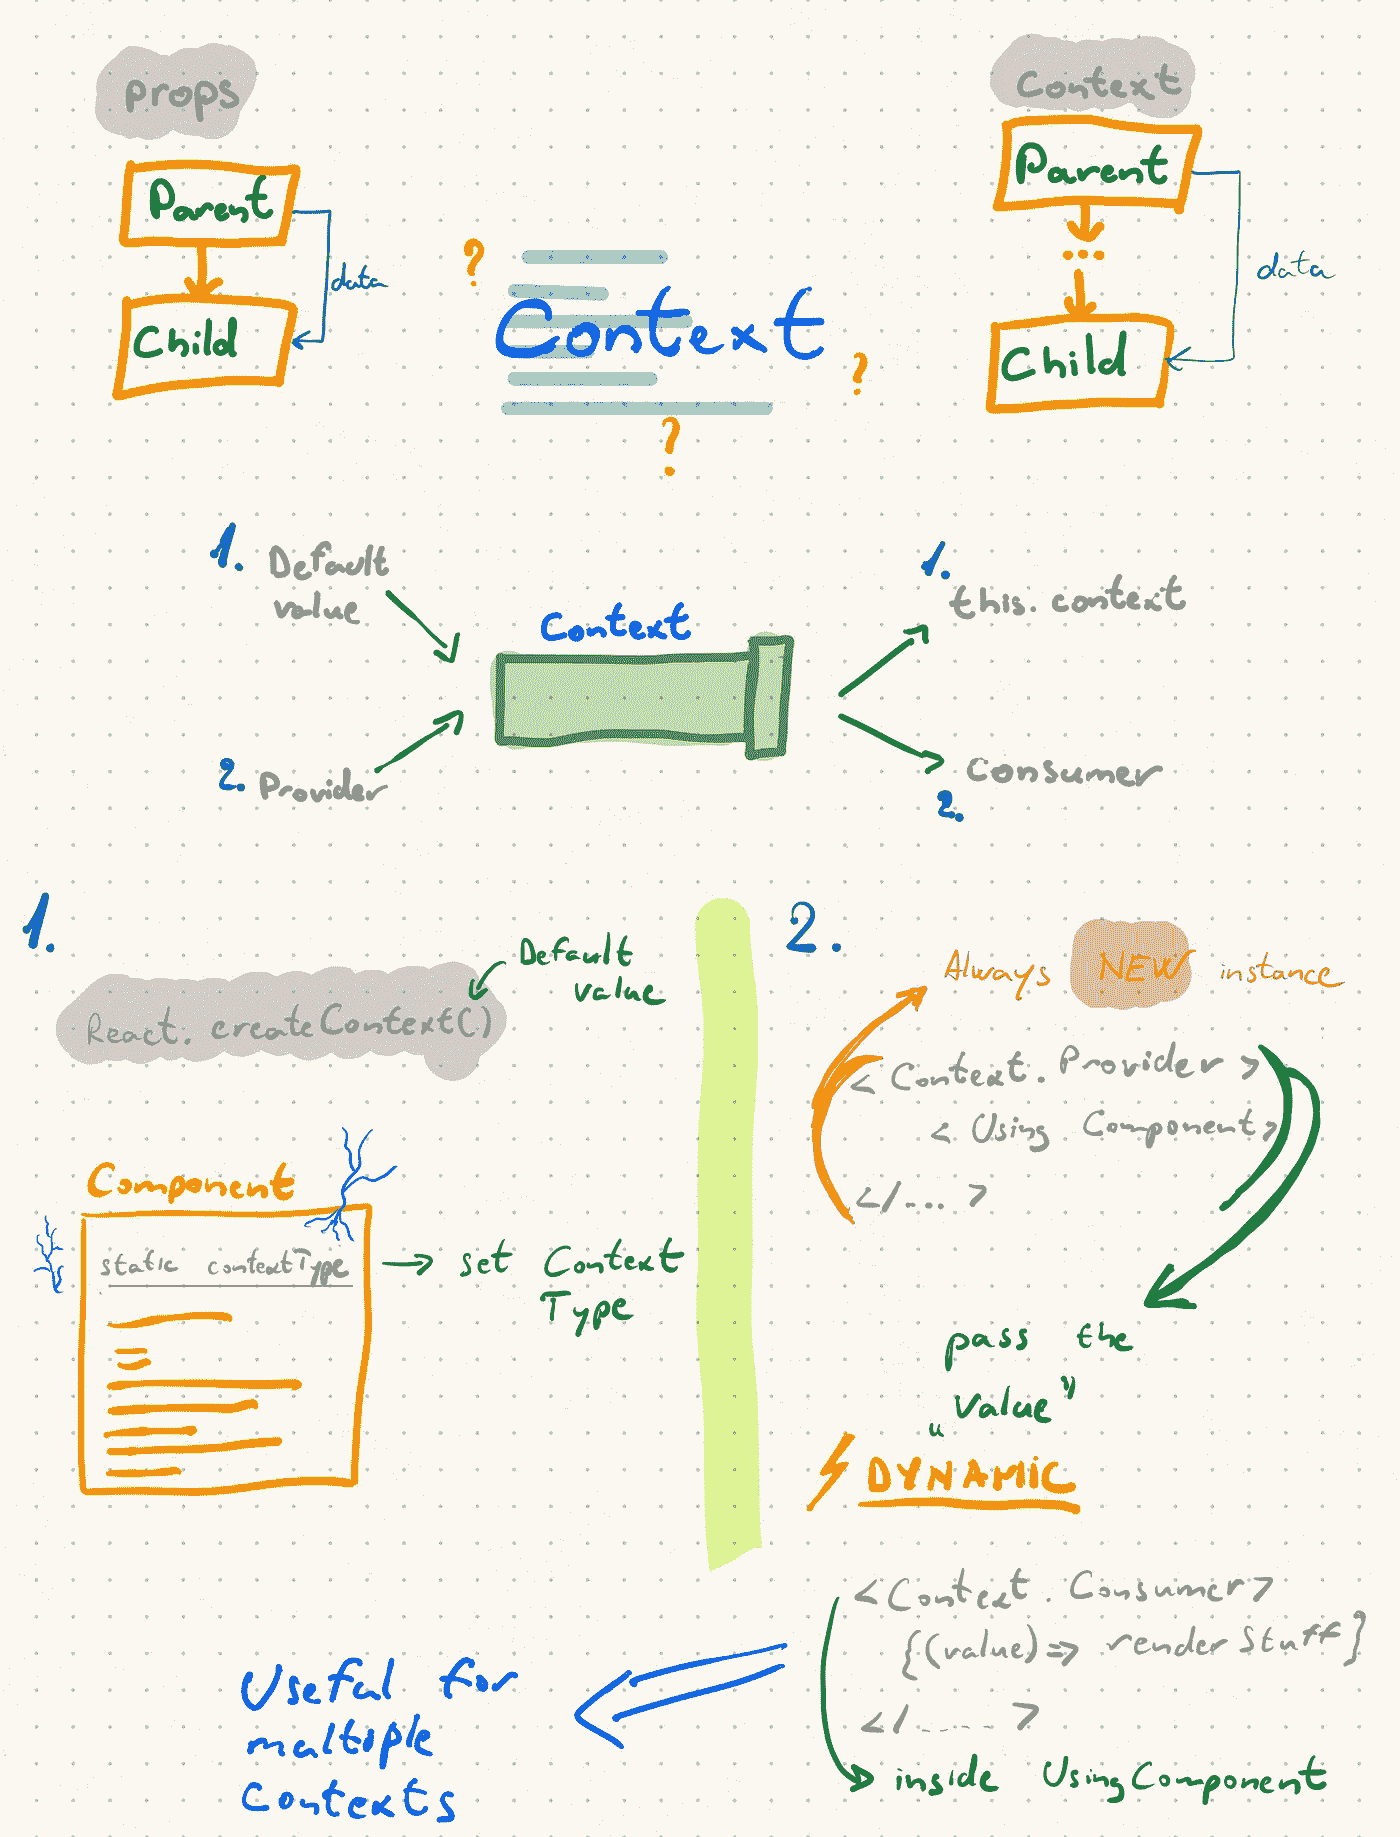 props
Parent
data
Child
Context
Parent
...
data
Child
?
Context
?
?
1. Default
value
2. Provider
Context
1.
this.context
Consumer
2.
1.
Default
value
React.createContext()
Component
static contextType
set Context
Type
2.
Always NEW instance
<Context.Provider>
<Using Component>
</....>
pass the
„Value”
DYNAMIC
<Context.Consumer>
{(value)=> render Stuff}
</.....>
inside UsingComponent
Useful for
maltiple
Contexts